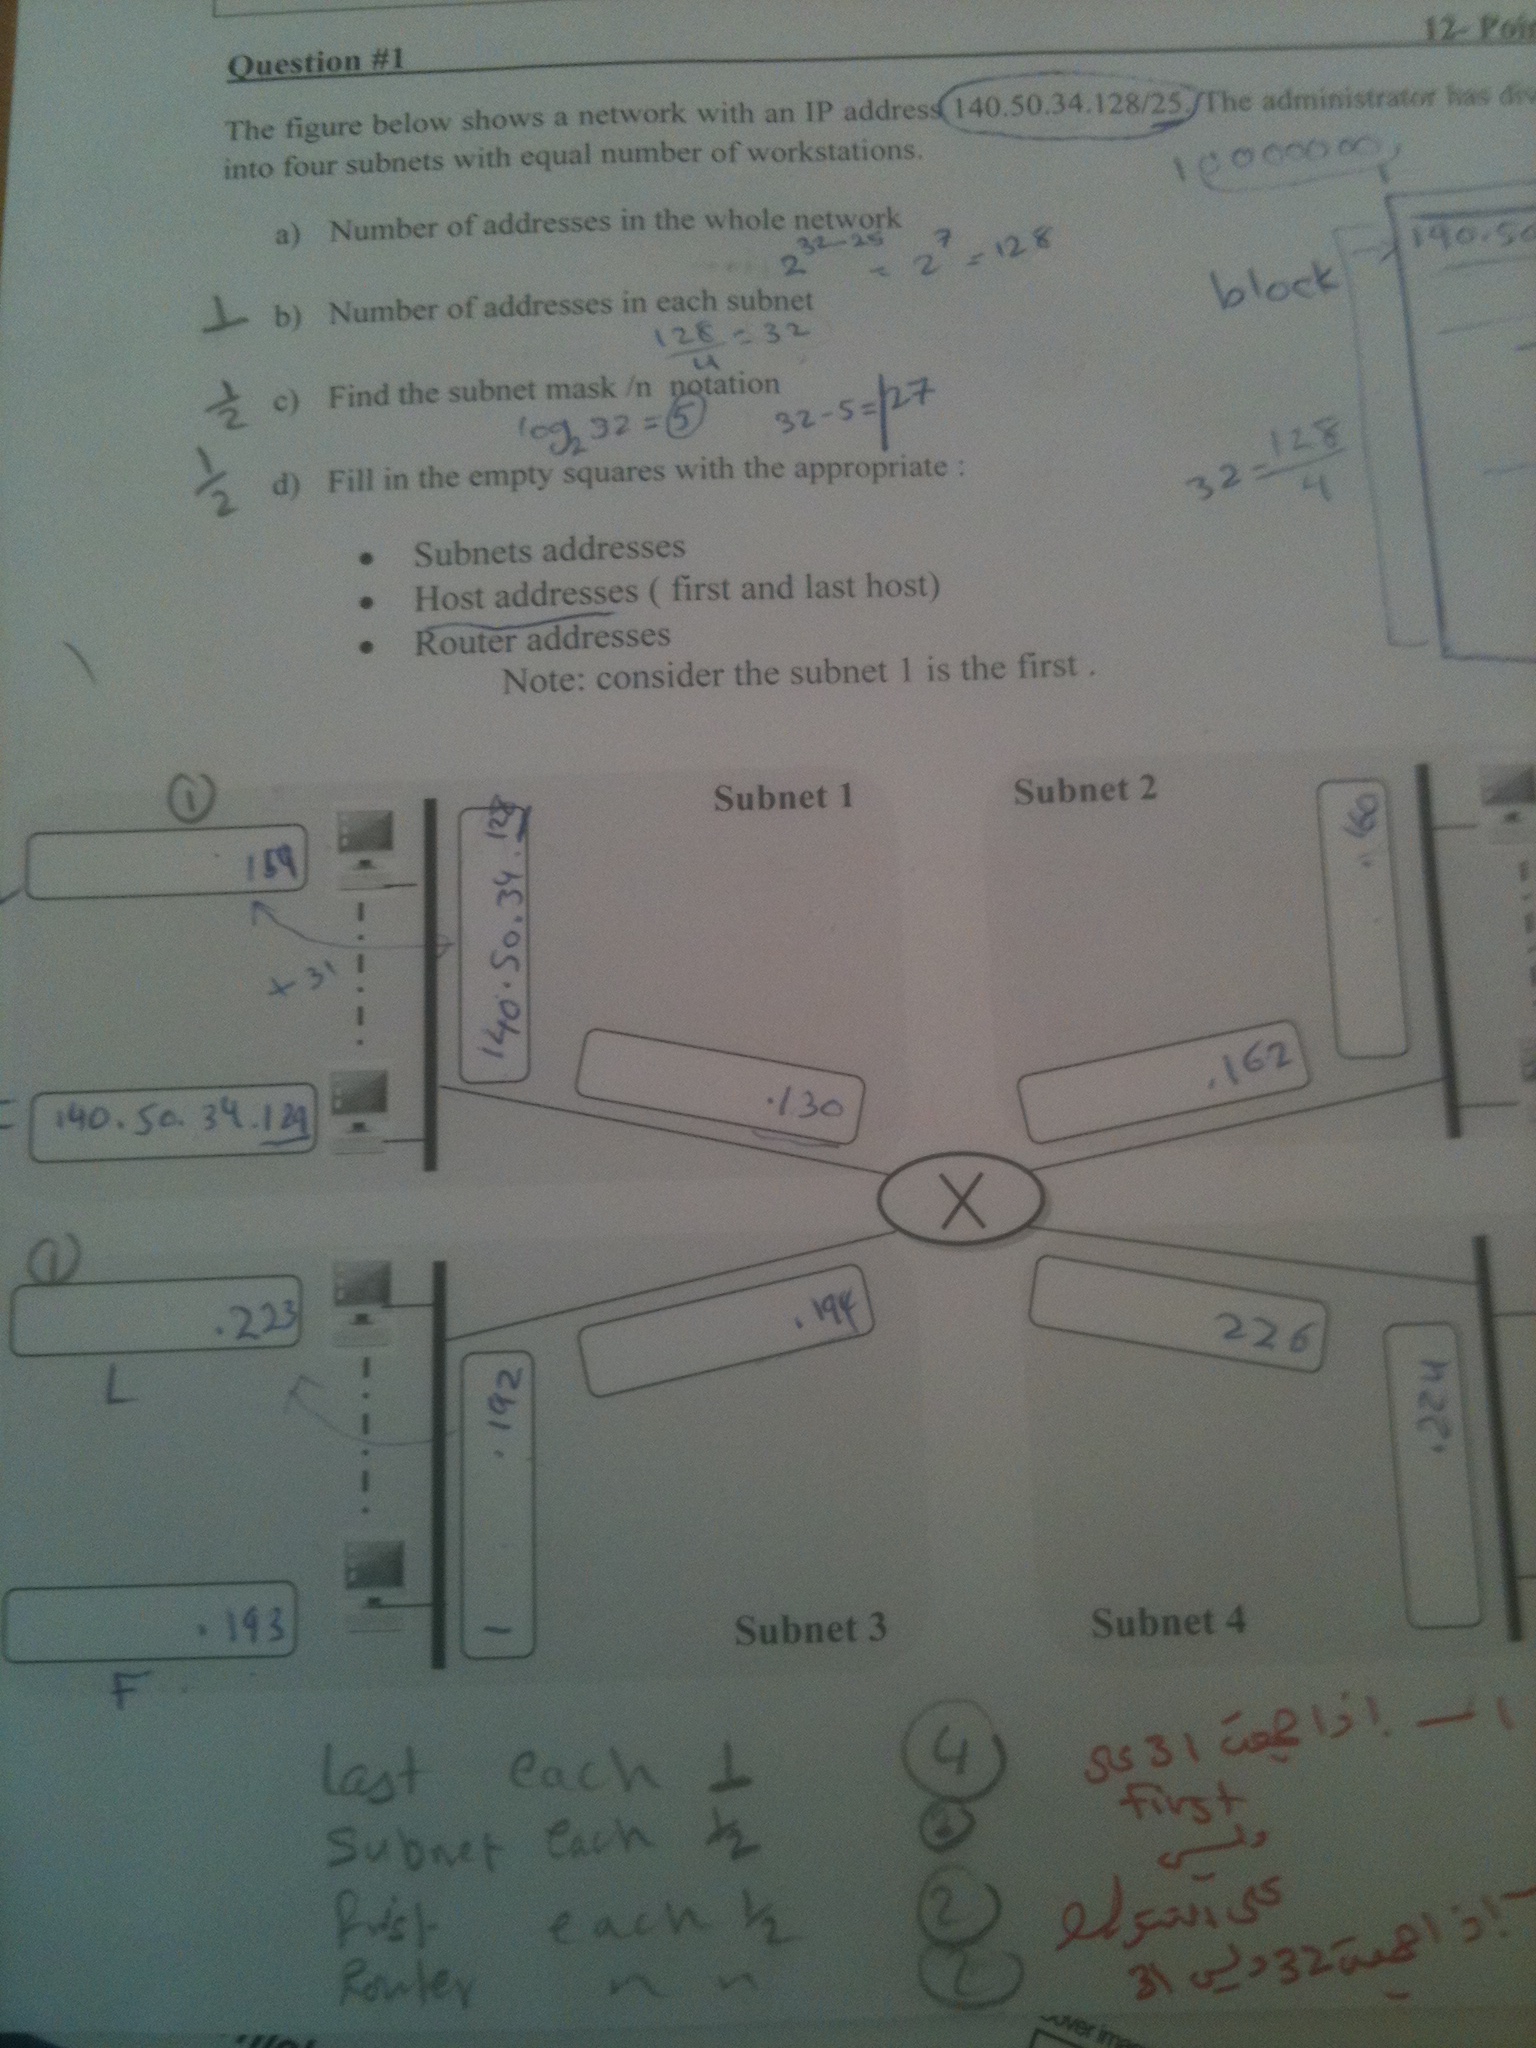 12- Poin
Question #1
The figure below shows a network with an IP address 140.50.34.128/25. The administrator has div
into four subnets with equal number of workstations.
10000000
a) Number of addresses in the whole network
2^32-25 = 2^7 = 128
140.50
block
1 b) Number of addresses in each subnet
128/4 = 32
1/2 c) Find the subnet mask /n notation
log2 32 = 5 32-5=/27
32 = 128/4
1/2 d) Fill in the empty squares with the appropriate :
• Subnets addresses
• Host addresses ( first and last host)
• Router addresses
Note: consider the subnet 1 is the first .
1
Subnet 1
Subnet 2
159
140.50.34.128
.160
+31
.130
.162
140.50.34.129
X
1
.223
L
.192
.194
226
.224
.193
F
Subnet 3
Subnet 4
Last each 1 4
Subnet each 1/2
First each 1/2 2
Router " " 2
1 - اذا جمعت 31 على
first
وليس
على العنوان
- اذا جمعت 32 وليس 31
over im